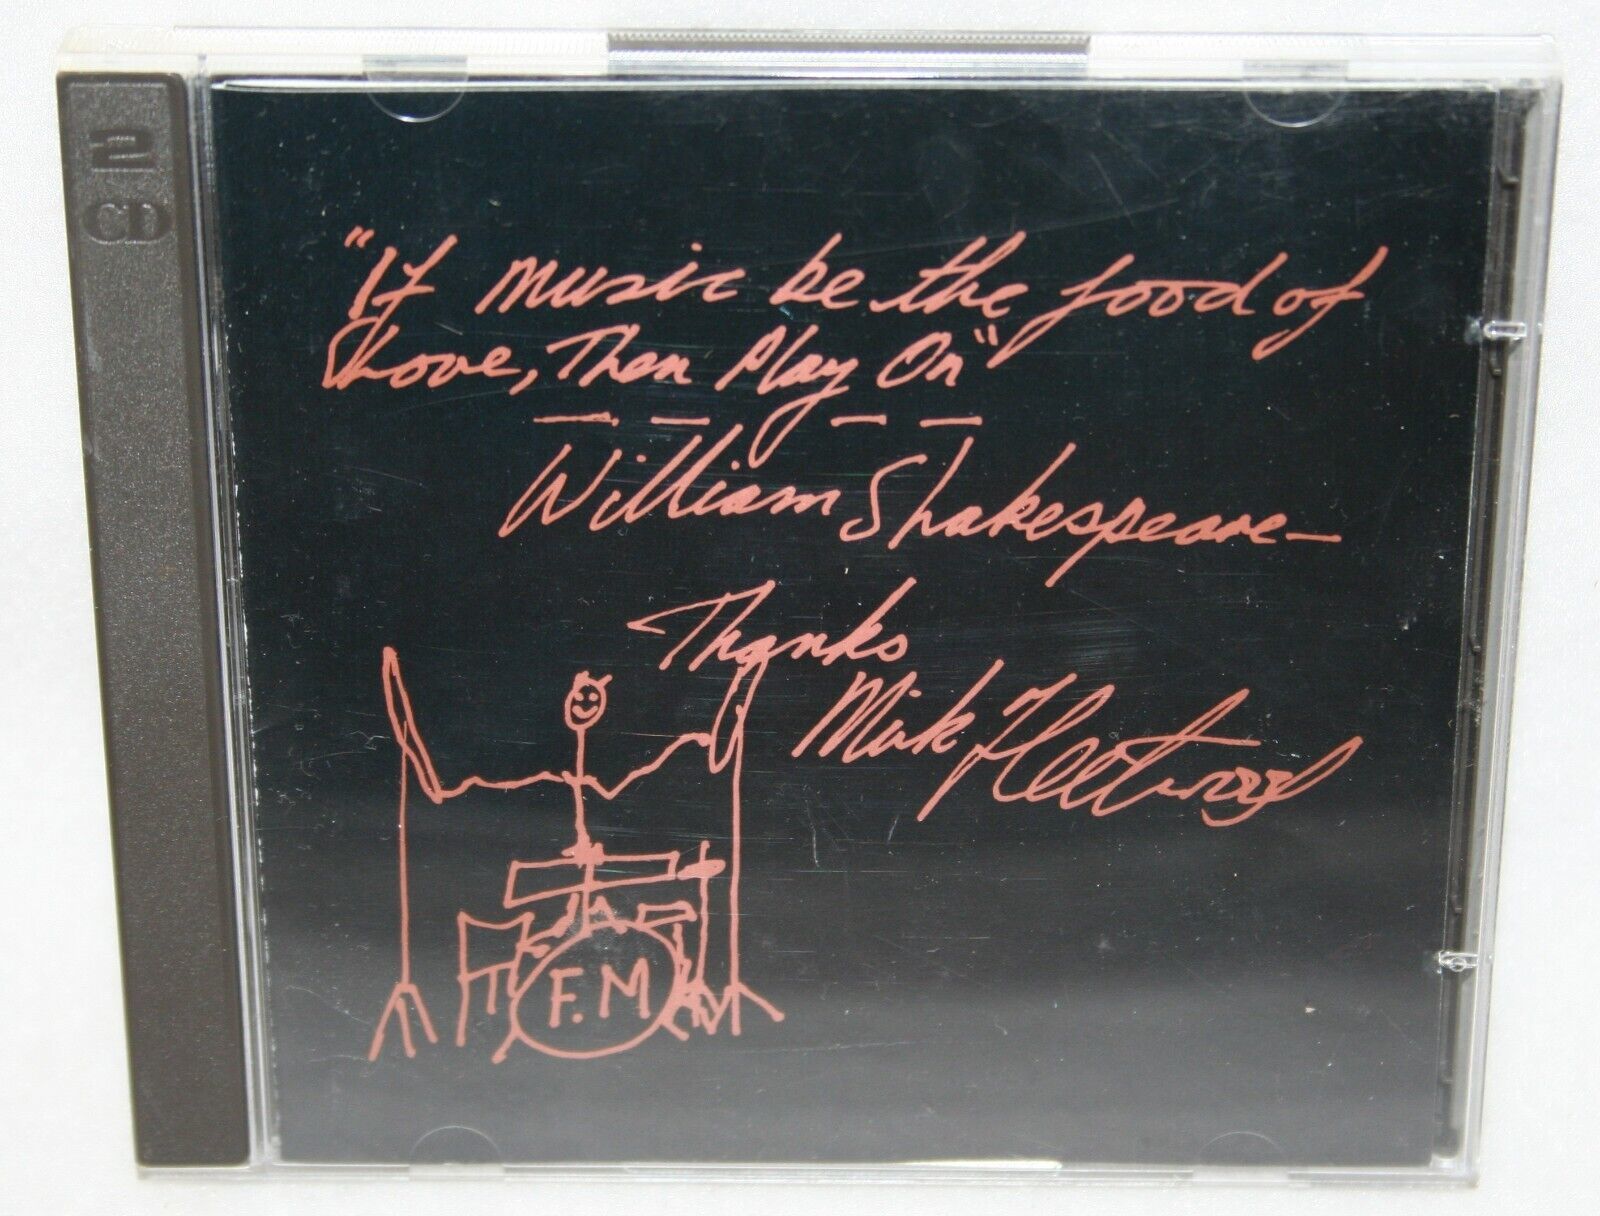 2
CD
"If music be the food of
Love, Then Play On"
William Shakespeare—
Thanks
Mick Fleetwood
F.M